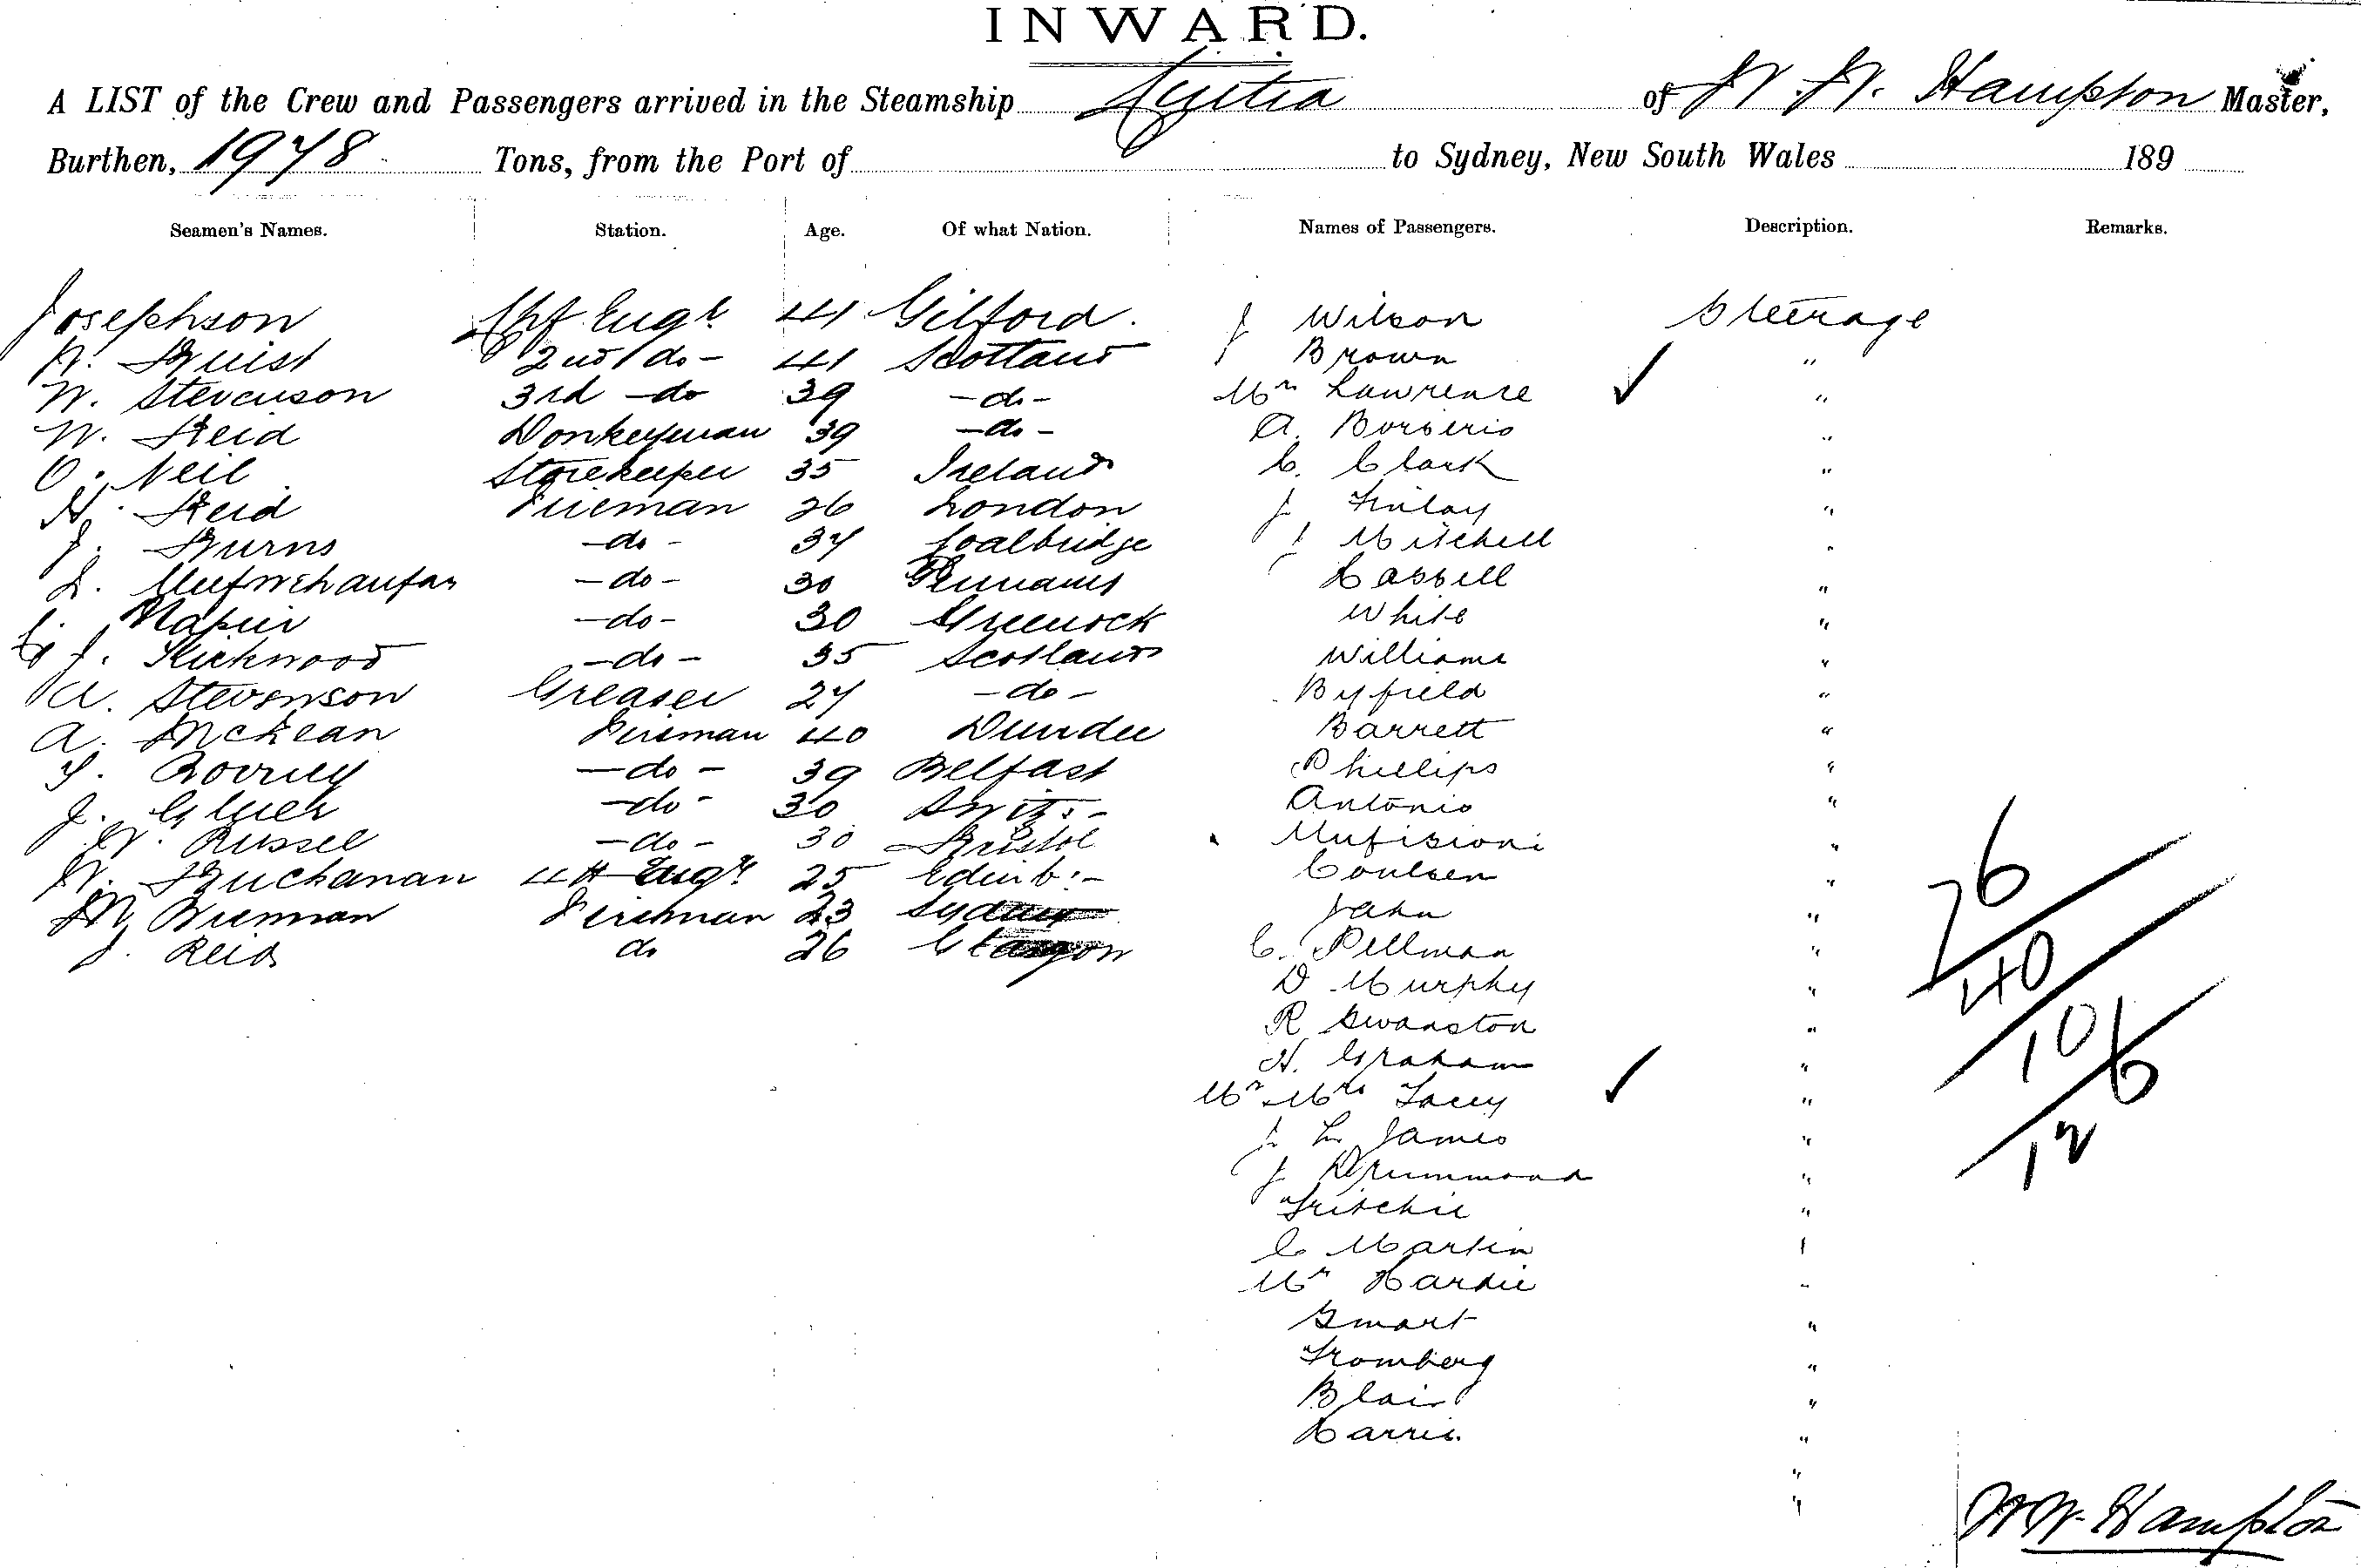 INWARD.
A LIST of the Crew and Passengers arrived in the Steamship of W. W. Hampton Master,
Burthen, 1978 Tons, from the Port of to Sydney, New South Wales 189
Seamen's Names. Station. Age. Of what Nation. Names of Passengers. Description. Remarks.
Josephson Chf Engr 41 Gilford. J Wilson Steerage
2nd do - 41 Scotland J Brown "
W. Stevenson 3rd - do 39 - do - Mr Lawrence ✓ "
W. Reid Donkeyman 39 - do - A. "
O. Neil Storekeeper 35 Ireland C. Clark "
H. Reid Fireman 26 London J Finlay "
J. Burns - do - 37 Coalbridge J Mitchell "
- do - 30 Cassell "
Napier - do - 30 Greenock White "
J. Kirkwood - do - 35 Scotland Williams "
A. Stevenson Greaser 27 - do - Byfield "
A. McLean Fireman 40 Dundee Barrett "
- do - 39 Belfast Phillips "
J. - do - 30 Switz. - Antonio "
W. Russel - do - 30 Bristol "
W. Buchanan 4th Engr 25 Edinb: - Coulsen "
M Brennan Fireman 23 Sydney Jahn "
J. Reid do 26 Glasgow C. Pellman "
D Murphy "
R Swanston "
H. Graham "
Mr Mrs Lacey ✓ "
J L James "
J Drummond "
Fritchie "
C Martin "
Mr Hardie "
Smart "
Fromberg "
Blair "
Harris "
"
"
76
40
106
12
W W. Hampton